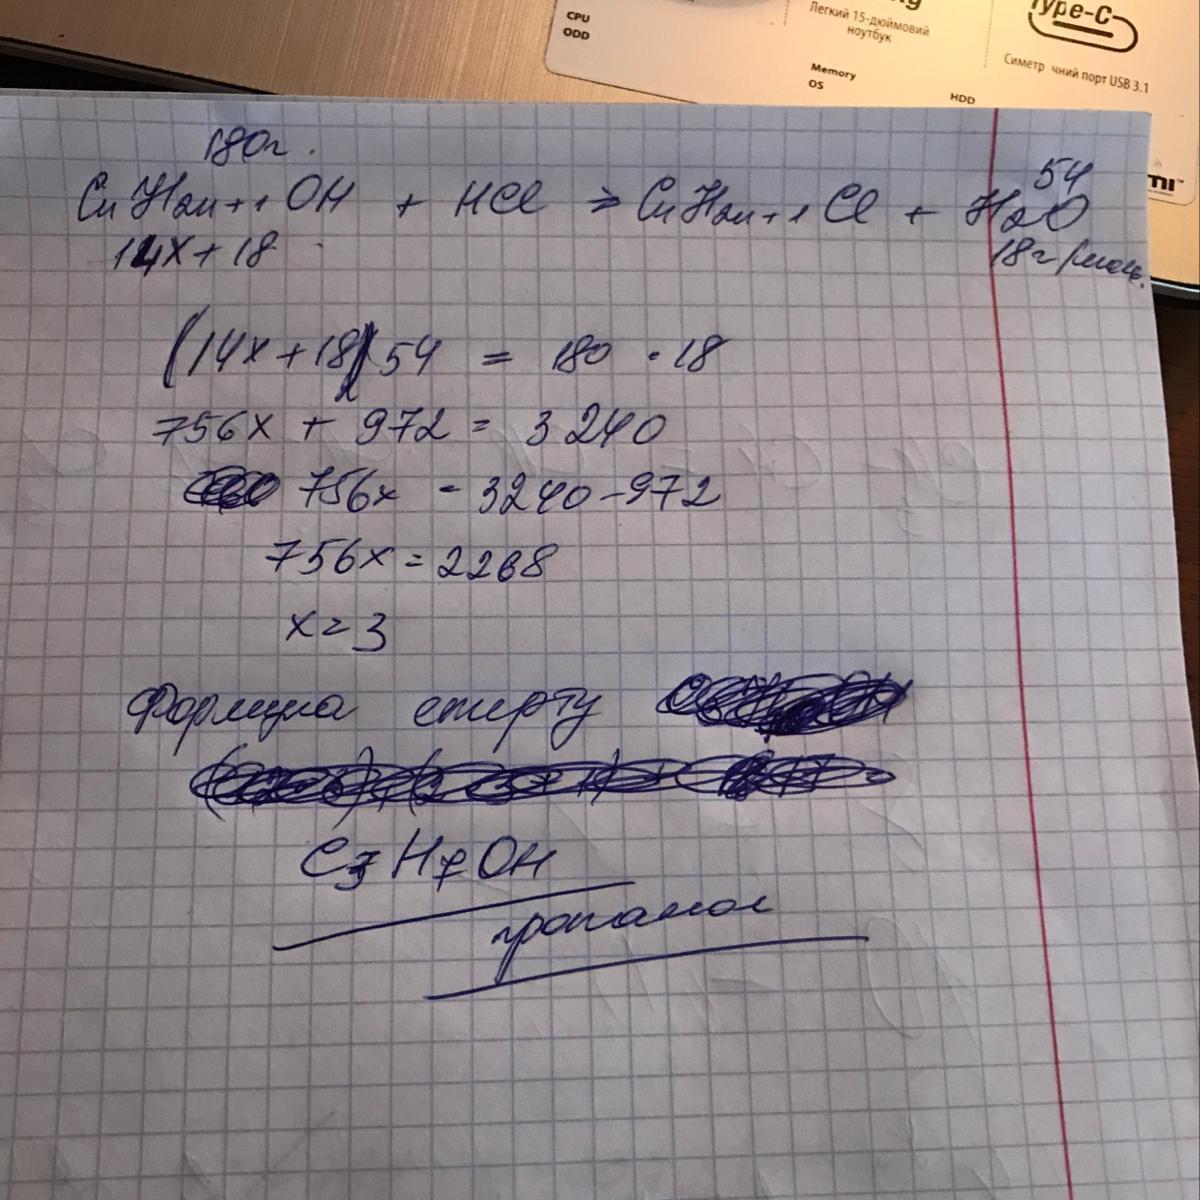 CPU
ODD
Легкий 15-дюймовий
ноутбук
Memory
OS
HDD
Type-C
Симетр чний порт USB 3.1
180г.
54
CnH2n+1OH + HCl => CnH2n+1Cl + H2O
14x+18
18г/моль.
(14x+18)54 = 180 · 18
756x + 972 = 3240
756x = 3240-972
756x = 2268
x=3
Формула спирту
C3H7OH
пропанол